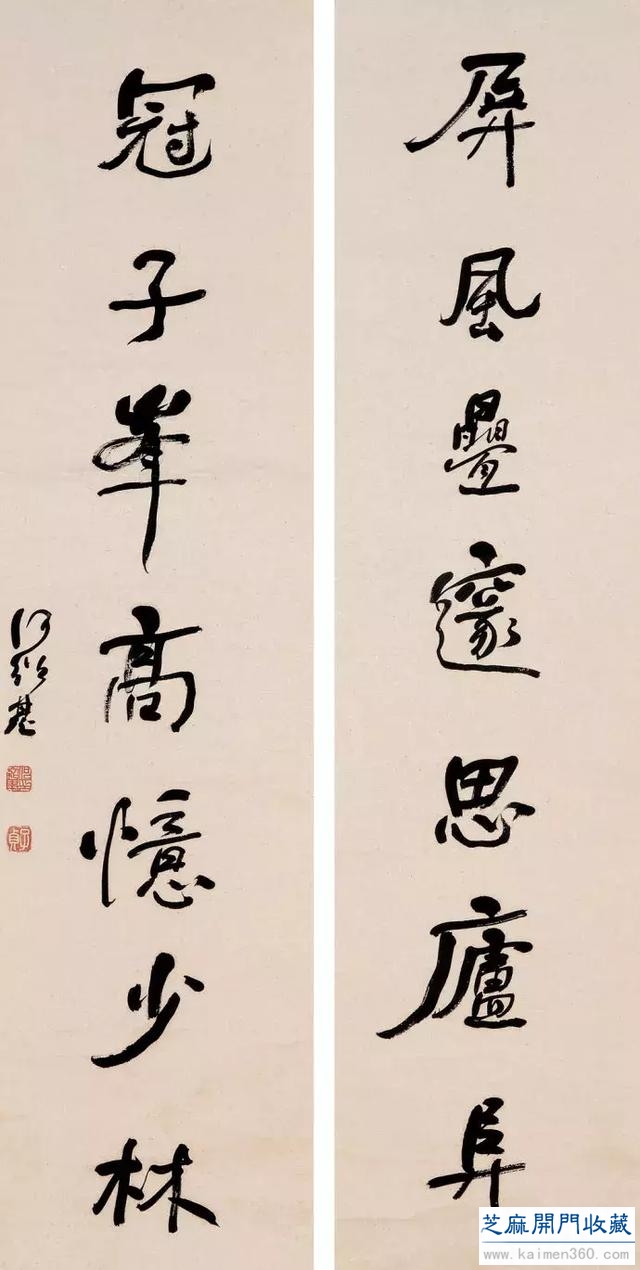 屏風疊邃思廬阜
冠子峯高憶少林
何紹基
子貞
芝麻開門收藏
www.kaimen360.com